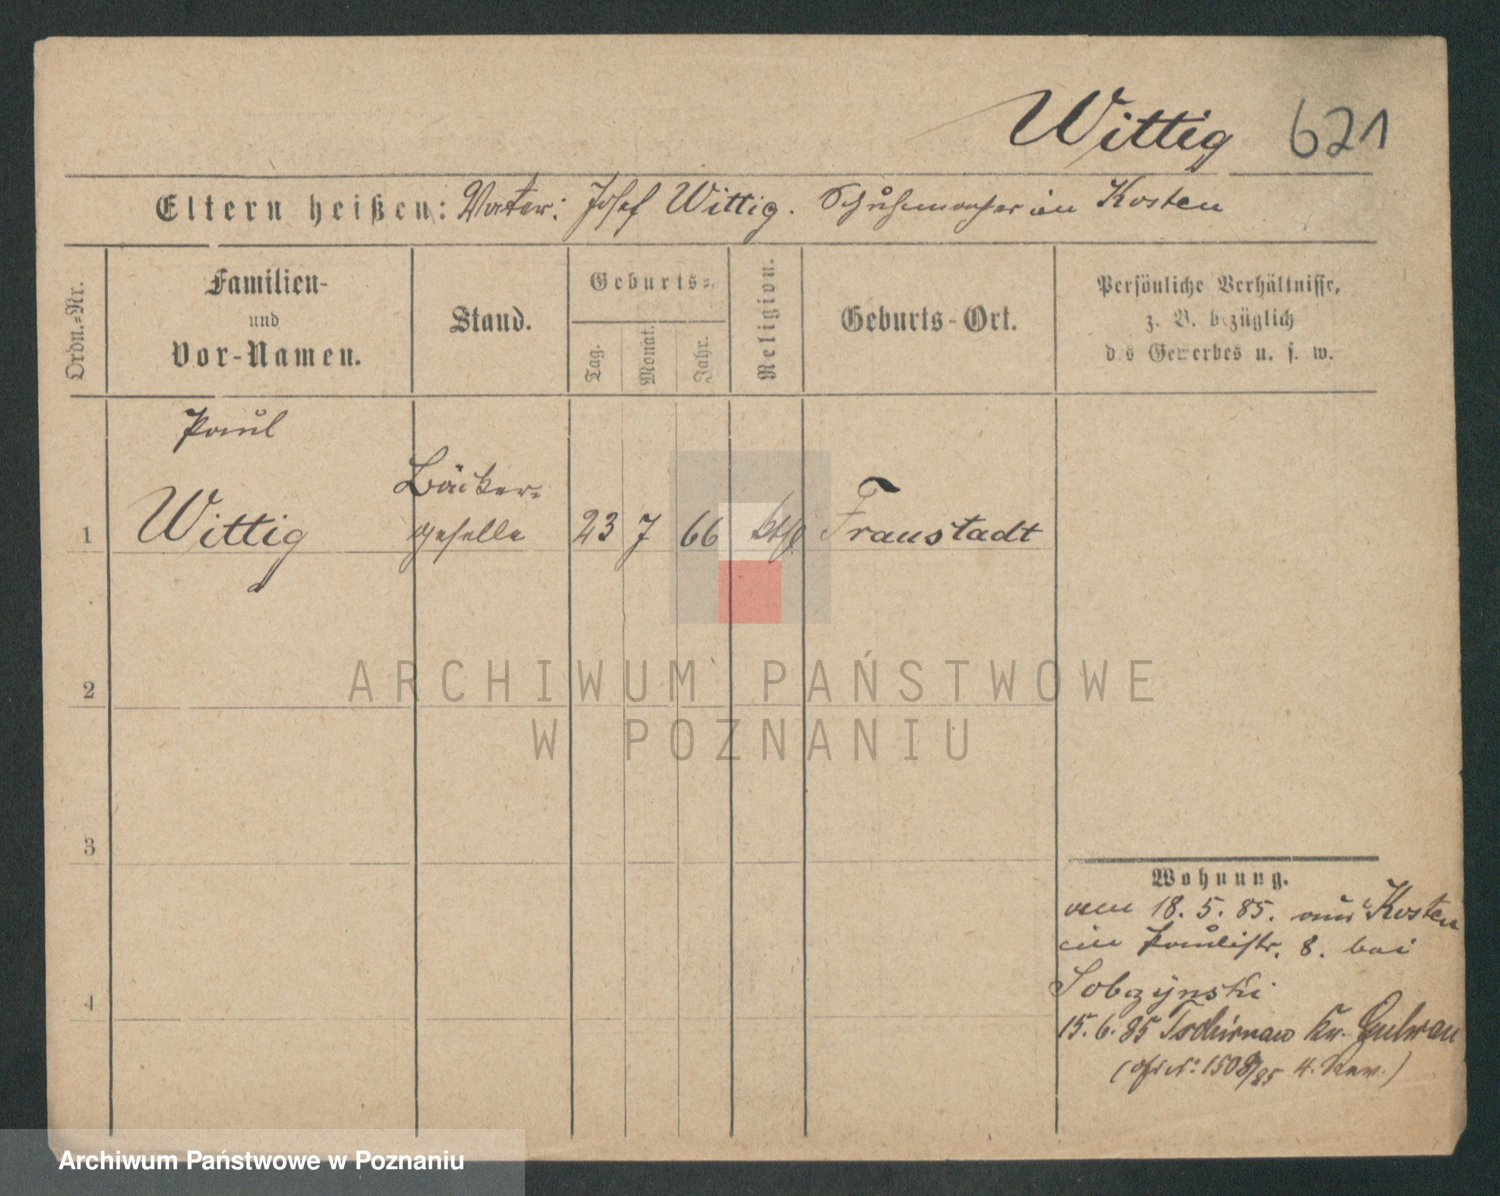 Wittig 621
Eltern heißen: Vater: Josef Wittig. Schuhmacher in Kosten
Ordn.-Nr.
Familien-
und
Vor-Namen.
Stand.
Geburts-
Tag.
Monat.
Jahr.
Religion.
Geburts-Ort.
Persönliche Verhältnisse,
z. B. bezüglich
des Gewerbes u. s. w.
Paul
Bäcker-
1 Wittig geselle 23 7 66 kth Fraustadt
2
3
4
Wohnung.
vom 18. 5. 85. aus Kosten
in Paulistr. 8. bei
Sobczynski
15. 6. 85 Tschirnau Kr. Guhrau
1508/85 4. Rev.)
ARCHIWUM PAŃSTWOWE
W POZNANIU
Archiwum Państwowe w Poznaniu